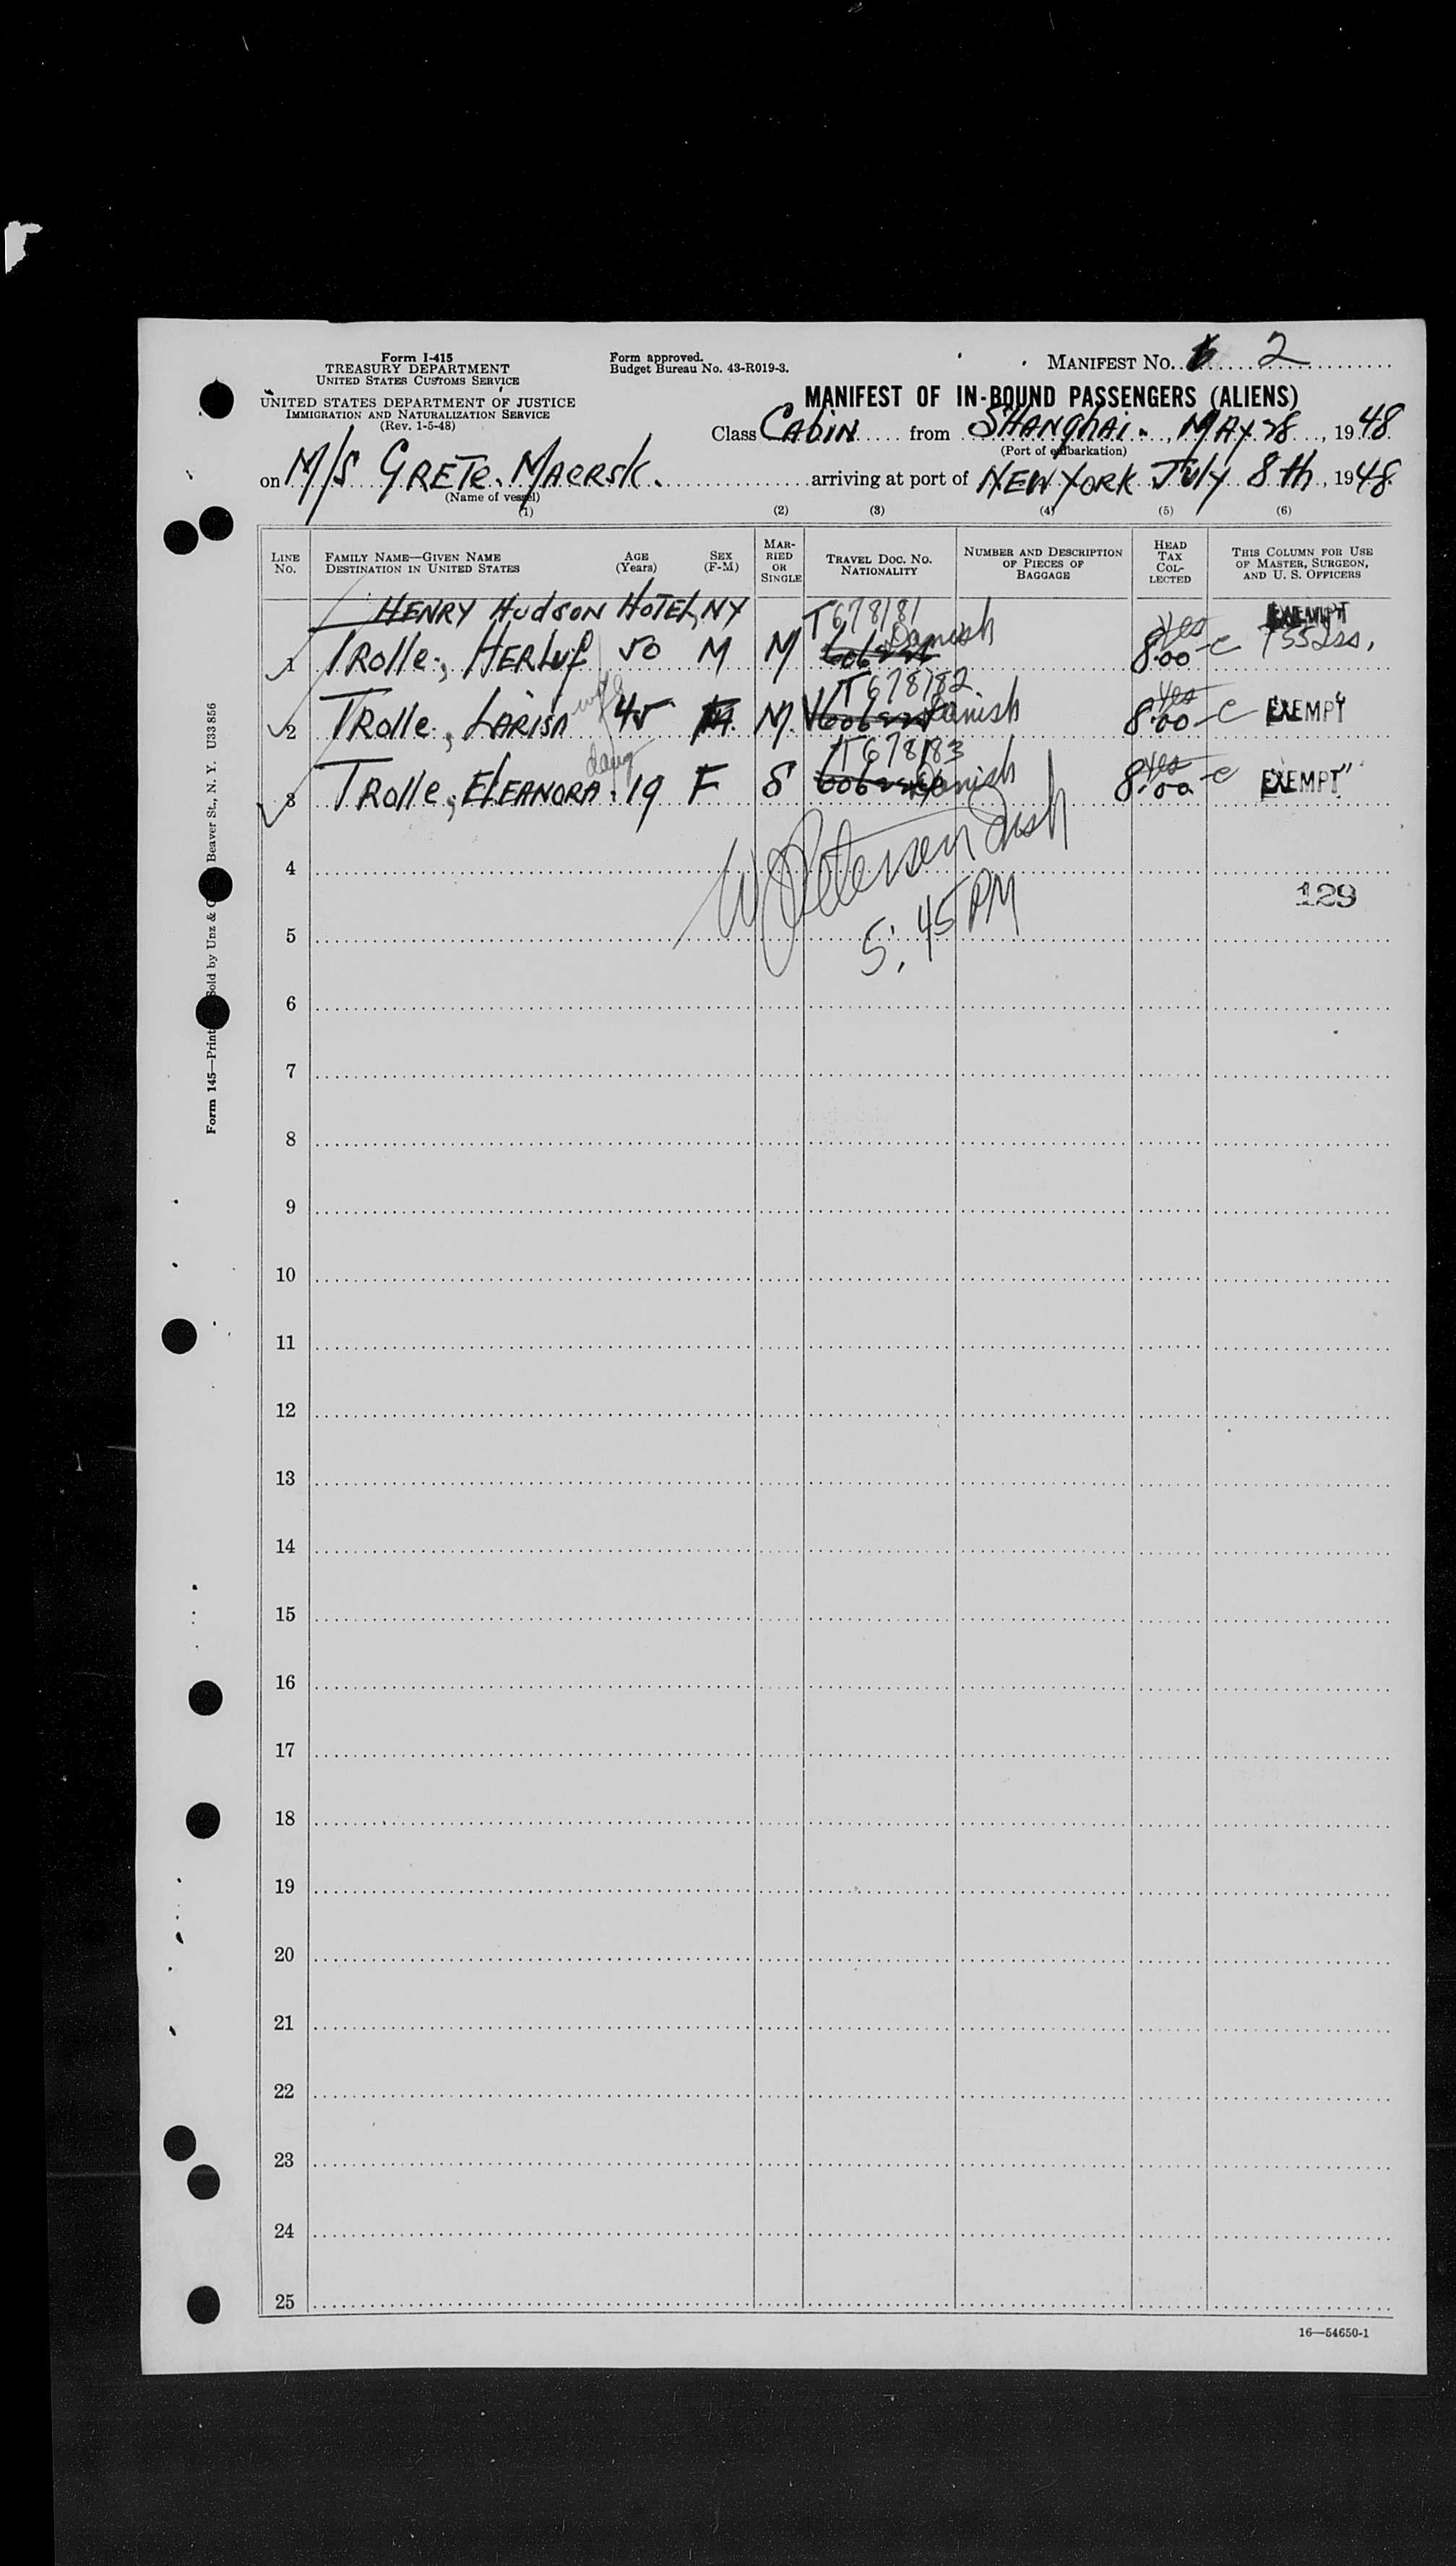 Form I-415
TREASURY DEPARTMENT
UNITED STATES CUSTOMS SERVICE
UNITED STATES DEPARTMENT OF JUSTICE
IMMIGRATION AND NATURALIZATION SERVICE
(Rev. 1-5-48)
Form approved.
Budget Bureau No. 43-R019-3.
MANIFEST NO. 2
MANIFEST OF IN-BOUND PASSENGERS (ALIENS)
Class CABIN from SHANGHAI. MAY 28, 1948
(Port of embarkation)
on M/S GRETE MAERSK. arriving at port of NEW YORK July 8th, 1948
(Name of vessel)
(1) (2) (3) (4) (5) (6)
LINE NO. FAMILY NAME—GIVEN NAME DESTINATION IN UNITED STATES AGE (Years) SEX (F-M) MARRIED OR SINGLE TRAVEL DOC. NO. NATIONALITY NUMBER AND DESCRIPTION OF PIECES OF BAGGAGE HEAD TAX COLLECTED THIS COLUMN FOR USE OF MASTER, SURGEON, AND U. S. OFFICERS
HENRY HUDSON HOTEL, NY T678181 Yes EXEMPT
1 TROLLE, HERLUF 50 M M Danish 8.00
2 TROLLE, LARISA wife 45 M. T678182 Danish Yes 8.00 EXEMPT
3 TROLLE, ELEANORA daug 19 F S T678183 Danish Yes 8.00 EXEMPT
W Petersen
5:45 PM
129
4
5
6
7
8
9
10
11
12
13
14
15
16
17
18
19
20
21
22
23
24
25
16—54650-1
Form 145—Print Sold by Unz & Beaver St., N. Y. U33856